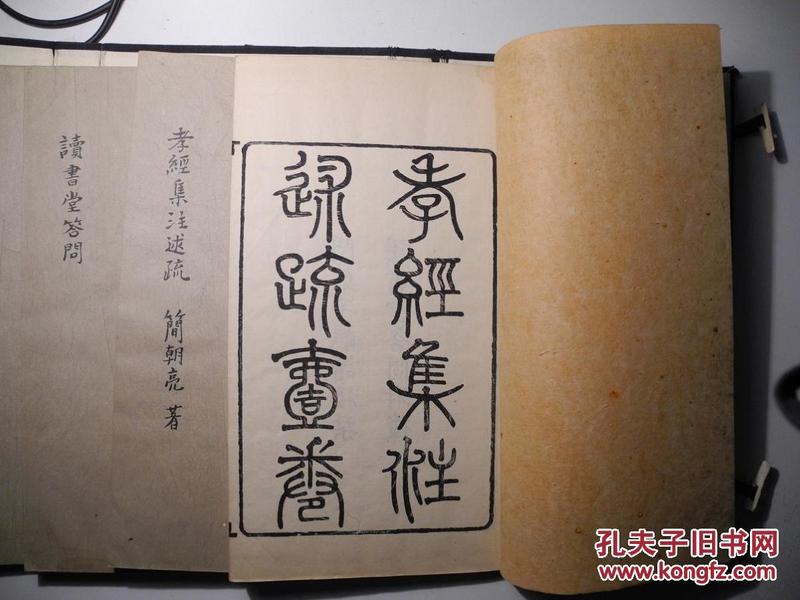 孝經集注
述疏壹卷
孝經集注述疏 簡朝亮 著
讀書堂答問
孔夫子旧书网
www.kongfz.com